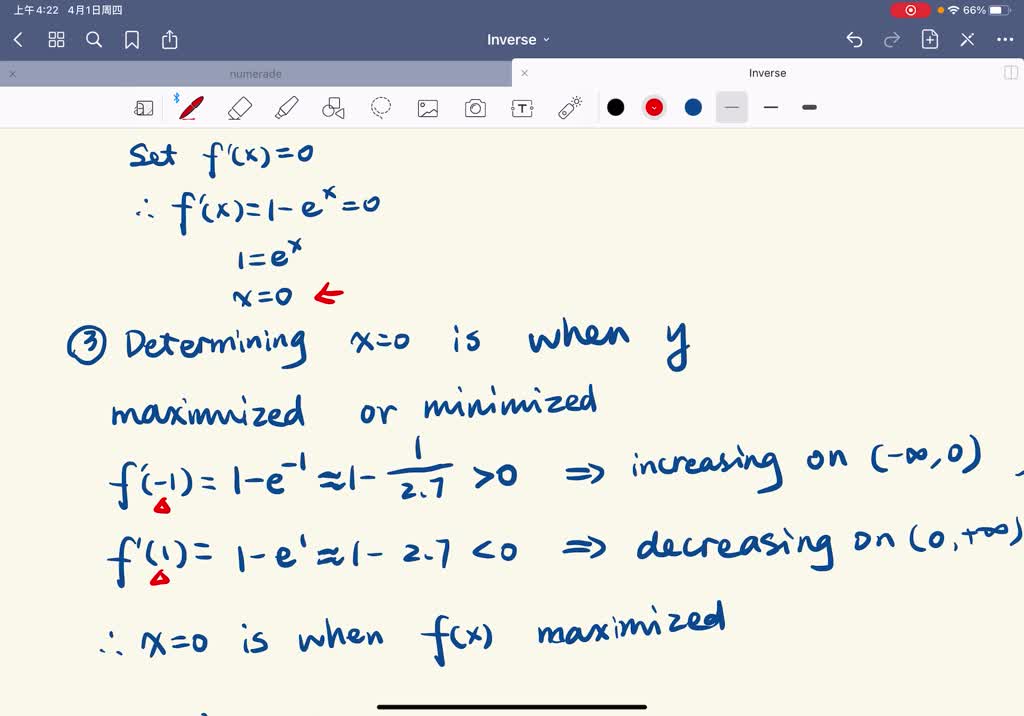 上午4:22 4月1日周四
66%
Inverse
numerade
Inverse
T
Set f'(x)=0
∴ f'(x)=1-e^x=0
1=e^x
x=0 ←
③ Determining x=0 is when y
maximized or minimized
f'(-1)=1-e^{-1}≈1-\frac{1}{2.7}>0 ⇒ increasing on (-∞,0)
f'(1)=1-e^1≈1-2.7<0 ⇒ decreasing on (0,+∞)
∴ x=0 is when f(x) maximized